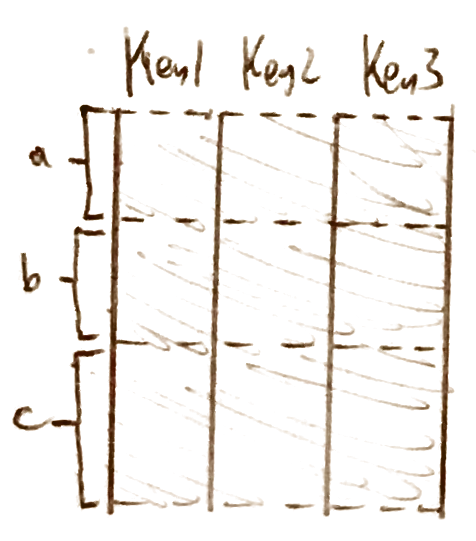 Key1 Key2 Key3
a
b
c